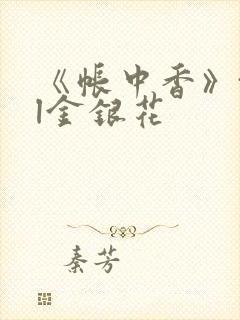 《帐中香》
l金银花
秦芳